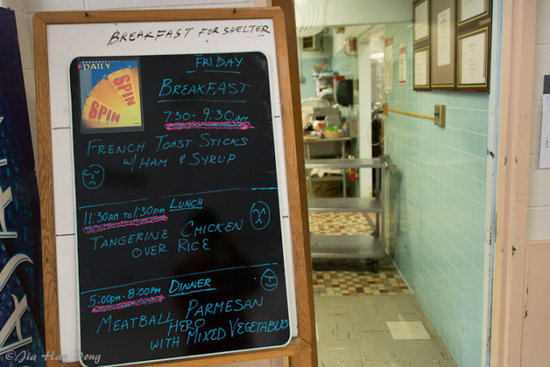 BREAKFAST FOR SHELTER
DAILY
SPIN
SPIN
FRIDAY
BREAKFAST
7:30 - 9:30AM
FRENCH TOAST STICKS
W/ HAM & SYRUP
11:30AM TO 1:30PM LUNCH
TANGERINE CHICKEN
OVER RICE
5:00PM - 8:00PM DINNER
MEATBALL PARMESAN
HERO
WITH MIXED VEGETABLES